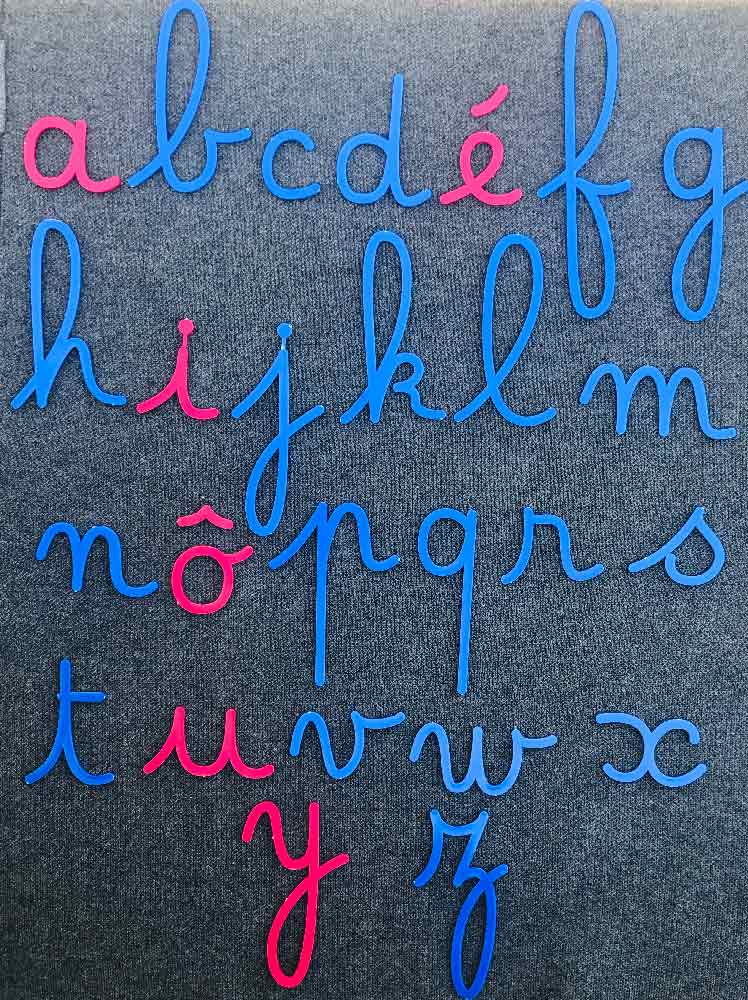 a b c d é f g
h i j k l m
n ô p q r s
t u v w x
y z